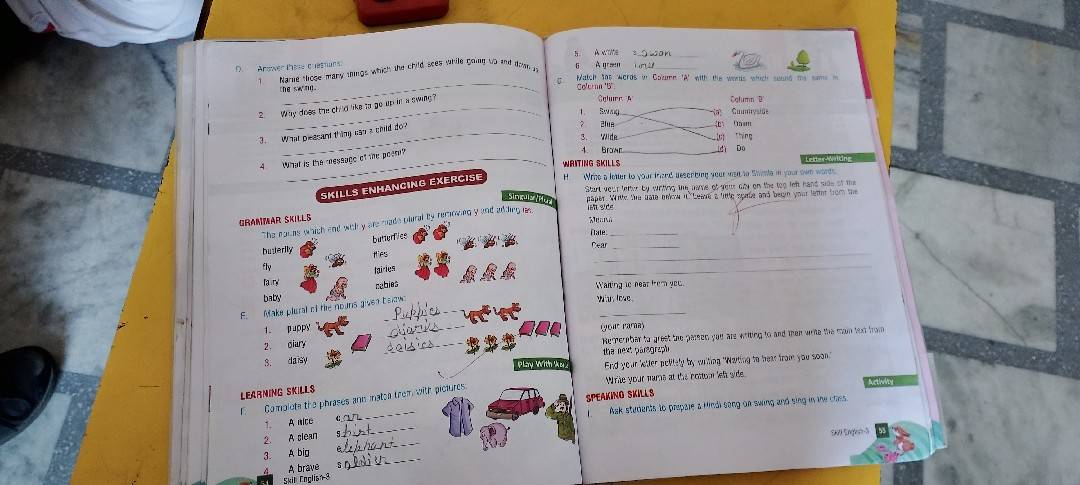 D. Answer these questions:
1. Name those many things which the child sees while going up and down
the swing.
2. Why does the child like to go up in a swing?
3. What pleasant thing can a child do?
4. What is the message of the poem?
SKILLS ENHANCING EXERCISE
GRAMMAR SKILLS
Singular/Plural
The nouns which end with y are made plural by removing y and adding ies.
butterfly butterflies
fly flies
fairy fairies
baby babies
E. Make plural of the nouns given below:
1. puppy Puppies
2. diary
3. daisy daisies
Play With Words
LEARNING SKILLS
F. Complete the phrases and match them with pictures.
1. A nice car
2. A clean shirt
3. A big elephant
4. A brave soldier
Skill English-3
5. A white swan
6. A green
G. Match the words in Column 'A' with the words which sound the same in
Column 'B'.
Column 'A' Column 'B'
1. Swing (a) Countryside
2. Blue (b) Down
3. Wide (c) Thing
4. Brown (d) Do
WRITING SKILLS
Letter-Writing
H. Write a letter to your friend describing your visit to Shimla in your own words.
Start your letter by writing the name of your city on the top left hand side of the
paper. Write the date below it. Leave a little space and begin your letter from the
left side.
Date:
Dear
Waiting to hear from you.
With love,
(your name)
Remember to greet the person you are writing to and then write the main text from
the next paragraph.
End your letter politely by writing 'Waiting to hear from you soon.'
Write your name at the bottom left side.
Activity
SPEAKING SKILLS
I. Ask students to prepare a Hindi song on swing and sing in the class.
Skill English-3 55